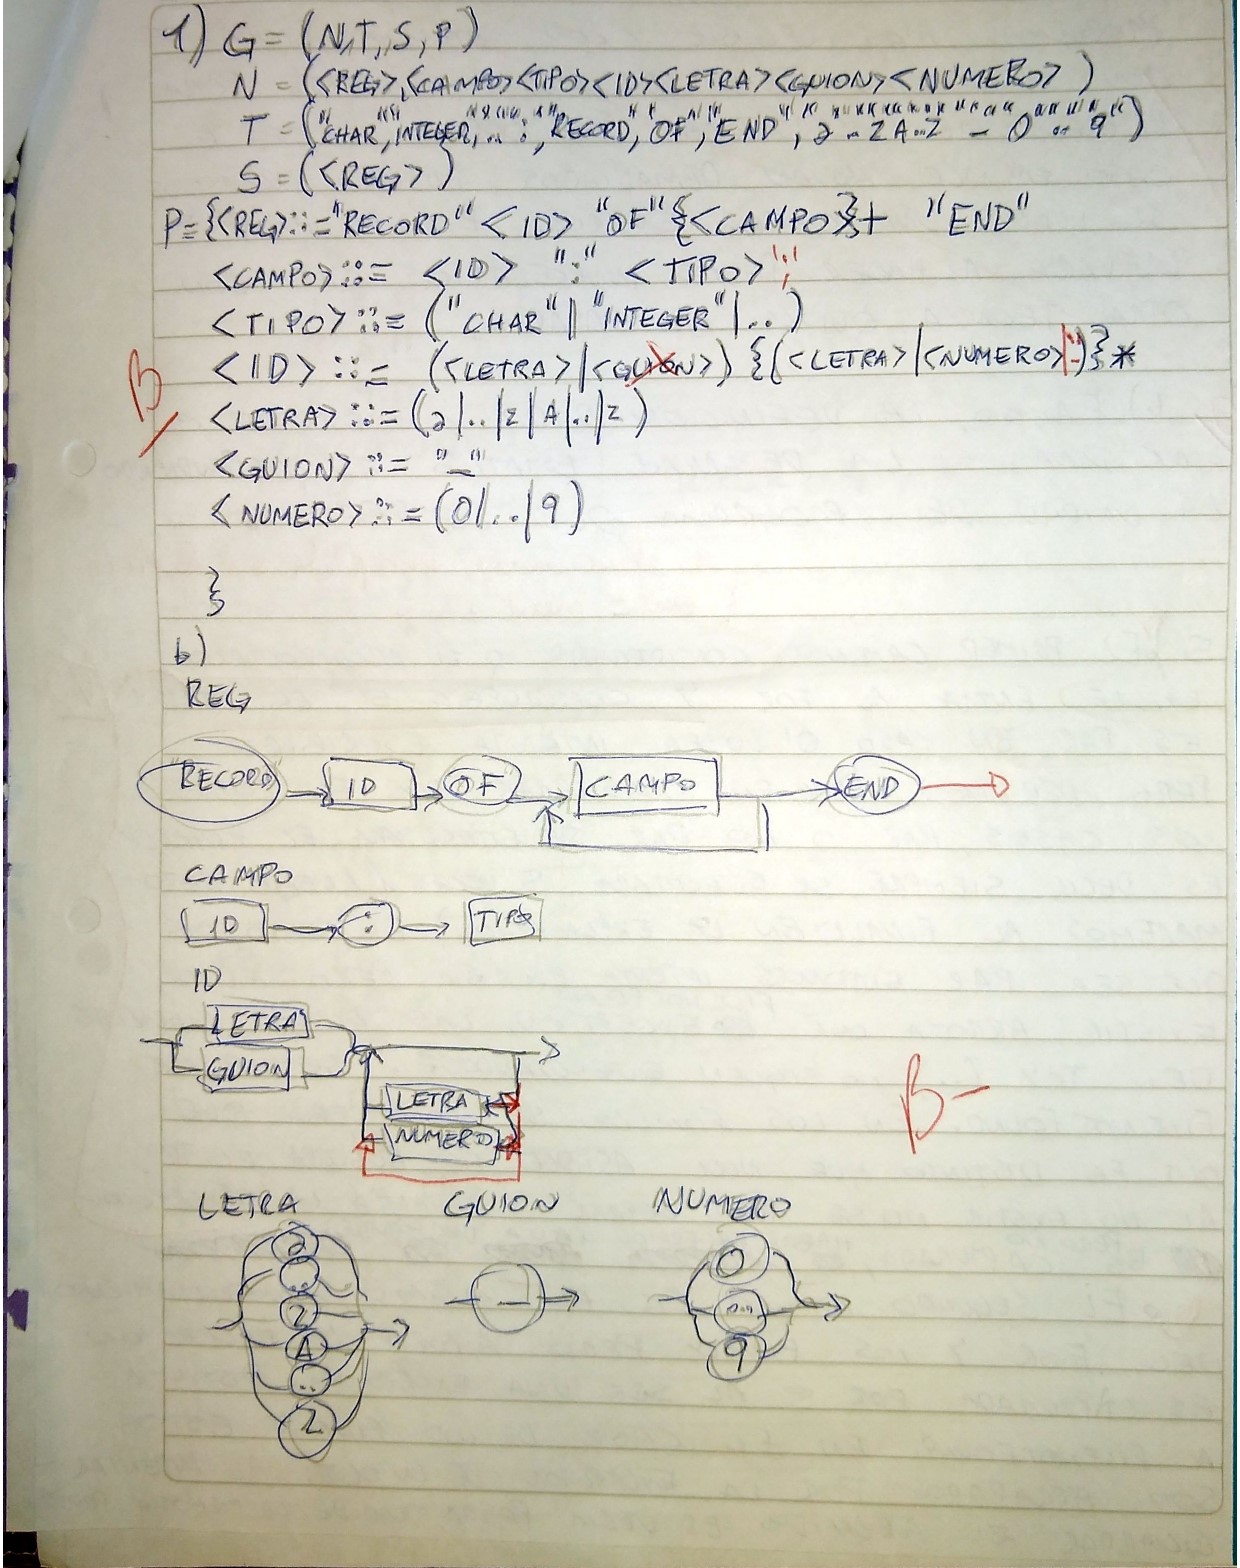 1) G = (N,T,S,P)
N = (<REG>,<CAMPO><TIPO><ID><LETRA><GUION><NUMERO>)
T = ("CHAR","INTEGER",..":","RECORD","OF","END", a..z A..Z - 0..9")
S = (<REG>)
P={<REG>::="RECORD" <ID> "OF"{<CAMPO>}+ "END"
<CAMPO>::= <ID> ":" <TIPO>";"
<TIPO>::= ("CHAR"|"INTEGER"|..)
<ID> ::= (<LETRA>|<GUION>) {(<LETRA>|<NUMERO>|"_")}*
B
<LETRA>::=(a|..|z|A|..|Z)
<GUION>::= "_"
<NUMERO>::=(0|..|9)
}
b)
REG
RECORD ID OF CAMPO END
CAMPO
ID : TIPO
ID
LETRA
GUION
LETRA
NUMERO
B-
LETRA GUION NUMERO
a .. z A .. Z
_
0 ... 9